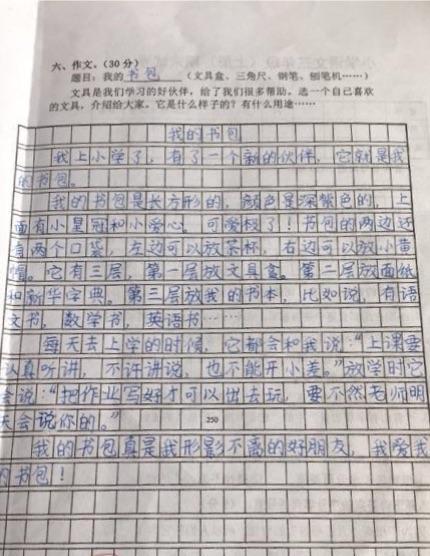 六、作文。(30分)
题目：我的书包（文具盒、三角尺、钢笔、刨笔机……）
文具是我们学习的好伙伴，给了我们很多帮助。选一个自己喜欢
的文具，介绍给大家。它是什么样子的？有什么用途……
我的书包
我上小学了，有了一个新的伙伴，它就是我
的书包。
我的书包是长方形的，颜色是深紫色的，上
面有小星冠和小爱心。可爱极了！书包的两边还
有两个口袋，左边可以放茶杯，右边可以放小黄
帽。它有三层，第一层放文具盒。第二层放面纸
和新华字典。第三层放我的书本，比如说，有语
文书，数学书，英语书……
每天去上学的时候，它都会和我说：“上课要
认真听讲，不许讲说，也不能开小差。”放学时它
会说：“把作业写好才可以出去玩，要不然老师明
天会说你的。”
250
我的书包真是我形影不离的好朋友，我爱我
的书包！